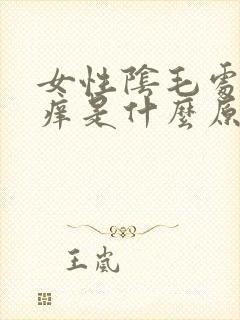 女性陰毛處
痒是什麼原
王嵐